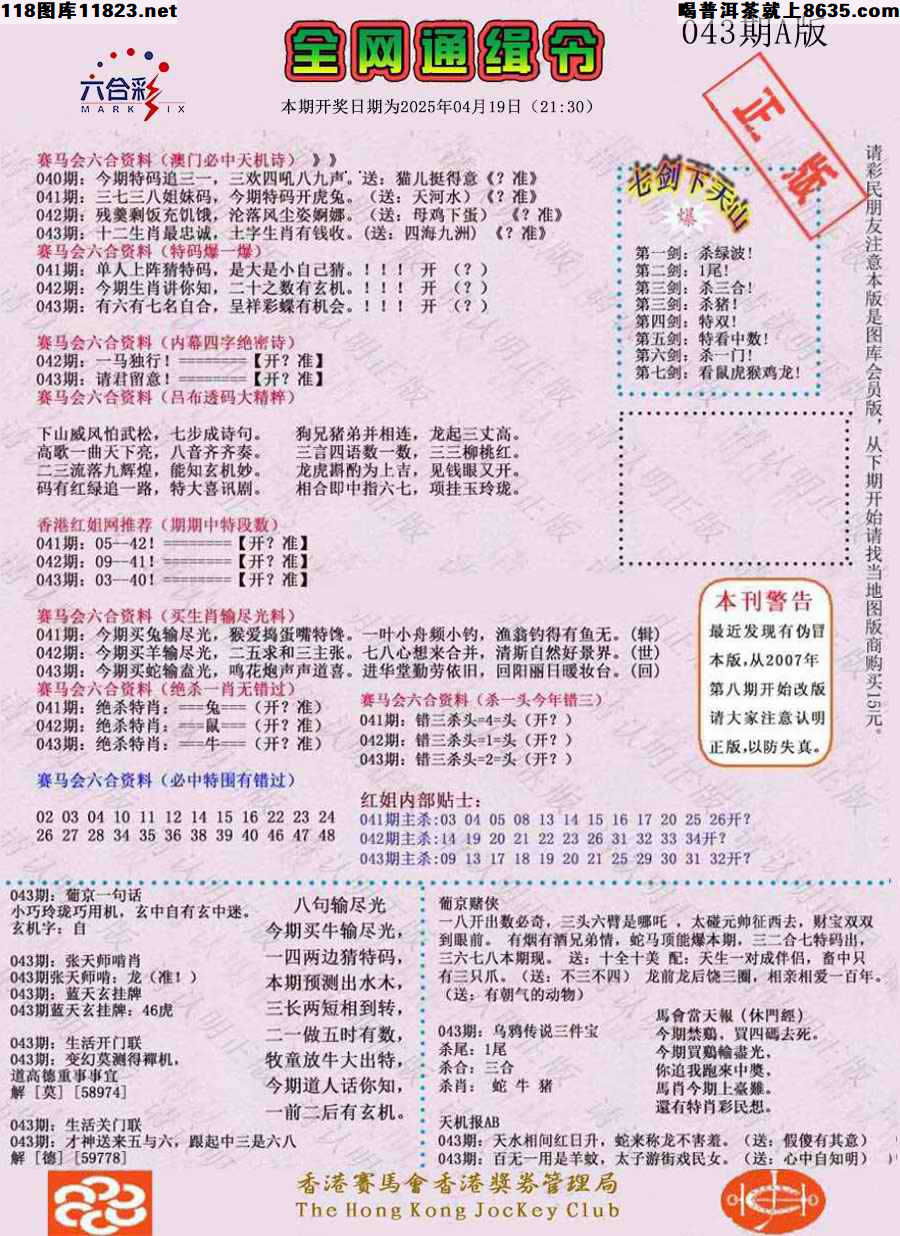 118图库11823.net
喝普洱茶就上8635.com
043期A版
全网通缉令
六合彩
MARK SIX
本期开奖日期为2025年04月19日（21:30）
正版
赛马会六合资料（澳门必中天机诗）》》
040期：今期特码追三一，三欢四吼八九声。送：猫儿挺得意《？准》
041期：三七三八姐妹码，今期特码开虎兔。（送：天河水）《？准》
042期：残羹剩饭充饥饿，沦落风尘姿婀娜。（送：母鸡下蛋） 《？准》
043期：十二生肖最忠诚，土字生肖有钱收。(送：四海九洲) 《？准》
赛马会六合资料（特码爆一爆）
041期：单人上阵猜特码，是大是小自己猜。！！！ 开 （？）
042期：今期生肖讲你知，二十之数有玄机。！！！ 开 （？）
043期：有六有七名自合，呈祥彩蝶有机会。！！！ 开 （？）
赛马会六合资料（内幕四字绝密诗）
042期：一马独行！========【开？准】
043期：请君留意！========【开？准】
赛马会六合资料（吕布透码大精粹）
下山威风怕武松，七步成诗句。 狗兄猪弟并相连，龙起三丈高。
高歌一曲天下亮，八音齐齐奏。 三言四语数一数，三三柳桃红。
二三流落九辉煌，能知玄机妙。 龙虎斟酌为上吉，见钱眼又开。
码有红绿追一路，特大喜讯剧。 相合即中指六七，项挂玉玲珑。
香港红姐网推荐（期期中特段数）
041期：05--42！========【开？准】
042期：09--41！========【开？准】
043期：03--40！========【开？准】
赛马会六合资料（买生肖输尽光料）
041期：今期买兔输尽光，猴爱捣蛋嘴特馋。一叶小舟频小钓，渔翁钓得有鱼无。(辑)
042期：今期买羊输尽光，二五求和三主张。七八心想来合并，清斯自然好景界。(世)
043期：今期买蛇输盍光，鸣花炮声声道喜。进华堂勤劳依旧，回阳丽日暖妆台。(回)
赛马会六合资料（绝杀一肖无错过）
041期：绝杀特肖：===兔===（开？准）
042期：绝杀特肖：===鼠===（开？准）
043期：绝杀特肖：===牛===（开？准）
赛马会六合资料（杀一头今年错三）
041期：错三杀头=4=头（开？）
042期：错三杀头=1=头（开？）
043期：错三杀头=2=头（开？）
赛马会六合资料（必中特围有错过）
02 03 04 10 11 12 14 15 16 22 23 24
26 27 28 34 35 36 38 39 40 46 47 48
红姐内部贴士：
041期主杀:03 04 05 08 13 14 15 16 17 20 25 26开？
042期主杀:14 19 20 21 22 23 26 31 32 33 34开？
043期主杀:09 13 17 18 19 20 21 25 29 30 31 32开？
七剑下天山
爆
第一剑：杀绿波！
第二剑：1尾！
第三剑：杀三合！
第三剑：杀猪！
第四剑：特双！
第五剑：特看中数！
第六剑：杀一门！
第七剑：看鼠虎猴鸡龙！
请彩民朋友注意本版是图库会员版，从下期开始请找当地图版商购买1.5元。
本刊警告
最近发现有伪冒
本版,从2007年
第八期开始改版
请大家注意认明
正版,以防失真。
043期：葡京一句话
小巧玲珑巧用机，玄中自有玄中迷。
玄机字：自
043期：张天师啃肖
043期张天师啃：龙（准！）
043期：蓝天玄挂牌
043期蓝天玄挂牌：46虎
043期：生活开门联
043期：变幻莫测得禪机，
道高德重事事宜
解［莫］[58974]
043期：生活关门联
043期：才神送来五与六，跟起中三是六八
解［德］[59778]
八句输尽光
今期买牛输尽光，
一四两边猜特码，
本期预测出水木，
三长两短相到转，
二一做五时有数，
牧童放牛大出特，
今期道人话你知，
一前二后有玄机。
葡京赌侠
一八开出数必奇，三头六臂是哪吒 ，太碰元帅征西去，财宝双双
到眼前。 有烟有酒兄弟情，蛇马顶能爆本期，三二合七特码出，
三六七八本期现。 送：十全十美 配：天生一对成伴侣，畜中只
有三只爪。（送：不三不四） 龙前龙后饶三圈，相亲相爱一百年。
（送：有朝气的动物）
043期：乌鸦传说三件宝
杀尾：1尾
杀合：三合
杀肖： 蛇 牛 猪
馬會當天報（休門經）
今期禁鷄，買四碼去死。
今期買鷄輸盡光，
你追我跑來中獎。
馬肖今期上臺難。
還有特肖彩民想。
天机报AB
043期：天水相间红日升，蛇来称龙不害羞。（送：假傻有其意）
043期：百无一用是羊蚊，太子游街戏民女。（送：心中自知明）
香港賽馬會香港獎券管理局
The Hong Kong JocKey Club